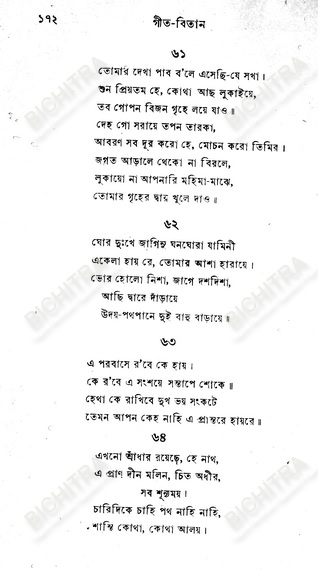 ১৭২
গীত-বিতান
৬১
তোমার দেখা পাব ব'লে এসেছি-যে সখা।
শুন প্রিয়তম হে, কোথা আছ লুকাইয়ে,
তব গোপন বিজন গৃহে লয়ে যাও॥
দেহ গো সরায়ে তপন তারকা,
আবরণ সব দূর করো হে, মোচন করো তিমির।
জগত আড়ালে থেকো না বিরলে,
লুকায়ো না আপনারি মহিমা-মাঝে,
তোমার গৃহের দ্বার খুলে দাও॥
৬২
ঘোর দুঃখে জাগিনু ঘনঘোরা যামিনী
একেলা হায় রে, তোমার আশা হারায়ে।
ভোর হোলো নিশা, জাগে দশদিশা,
আছি দ্বারে দাঁড়ায়ে
উদয়-পথপানে দুই বাহু বাড়ায়ে॥
৬৩
এ পরবাসে র'বে কে হায়।
কে র'বে এ সংশয়ে সন্তাপে শোকে॥
হেথা কে রাখিবে দুখ ভয় সংকটে
তেমন আপন কেহ নাহি এ প্রান্তরে হায়রে॥
৬৪
এখনো আঁধার রয়েছে, হে নাথ,
এ প্রাণ দীন মলিন, চিত অধীর,
সব শূন্যময়।
চারিদিকে চাহি পথ নাহি নাহি,
শান্তি কোথা, কোথা আলয়।
BICHITRA